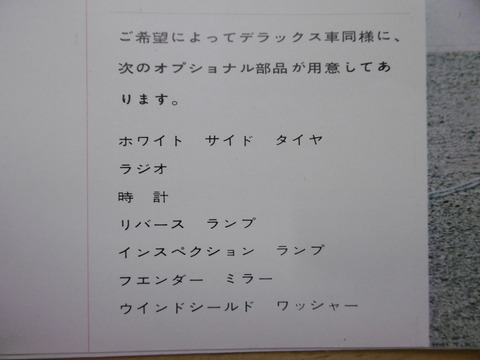 ご希望によってデラックス車同様に、
次のオプショナル部品が用意してあ
ります。
ホワイト サイド タイヤ
ラジオ
時 計
リバース ランプ
インスペクション ランプ
フエンダー ミラー
ウインドシールド ワッシャー